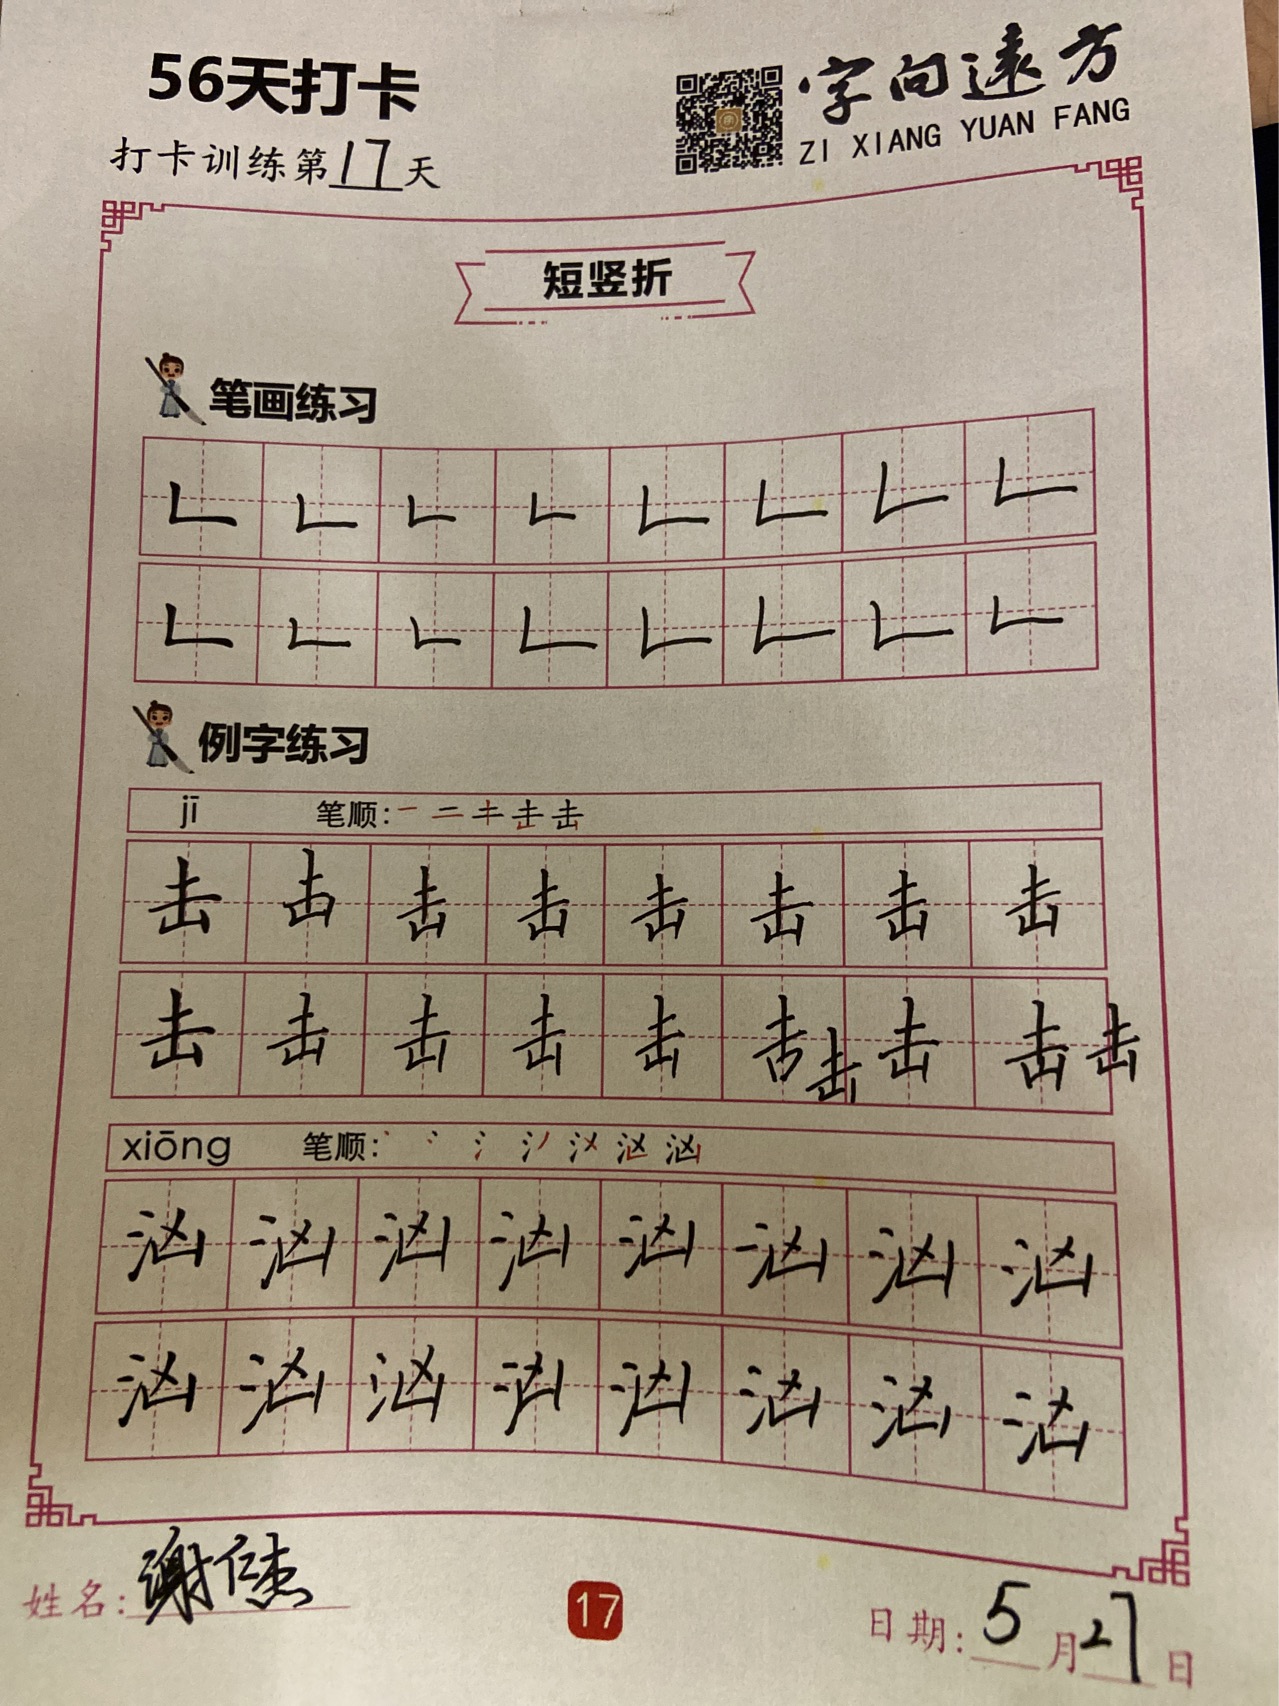 56天打卡
字向遠方
ZI XIANG YUAN FANG
打卡训练第17天
短竖折
笔画练习
𠃊 𠃊 𠃊 𠃊 𠃊 𠃊 𠃊 𠃊
𠃊 𠃊 𠃊 𠃊 𠃊 𠃊 𠃊 𠃊
例字练习
jī 笔顺: 一 二 キ 击 击
击 击 击 击 击 击 击
击 击 击 击 击 击 击 击 击
xiōng 笔顺: 汹
汹 汹 汹 汹 汹 汹 汹 汹
汹 汹 汹 汹 汹 汹 汹 汹
姓名: 谢
17
日期: 5月27日